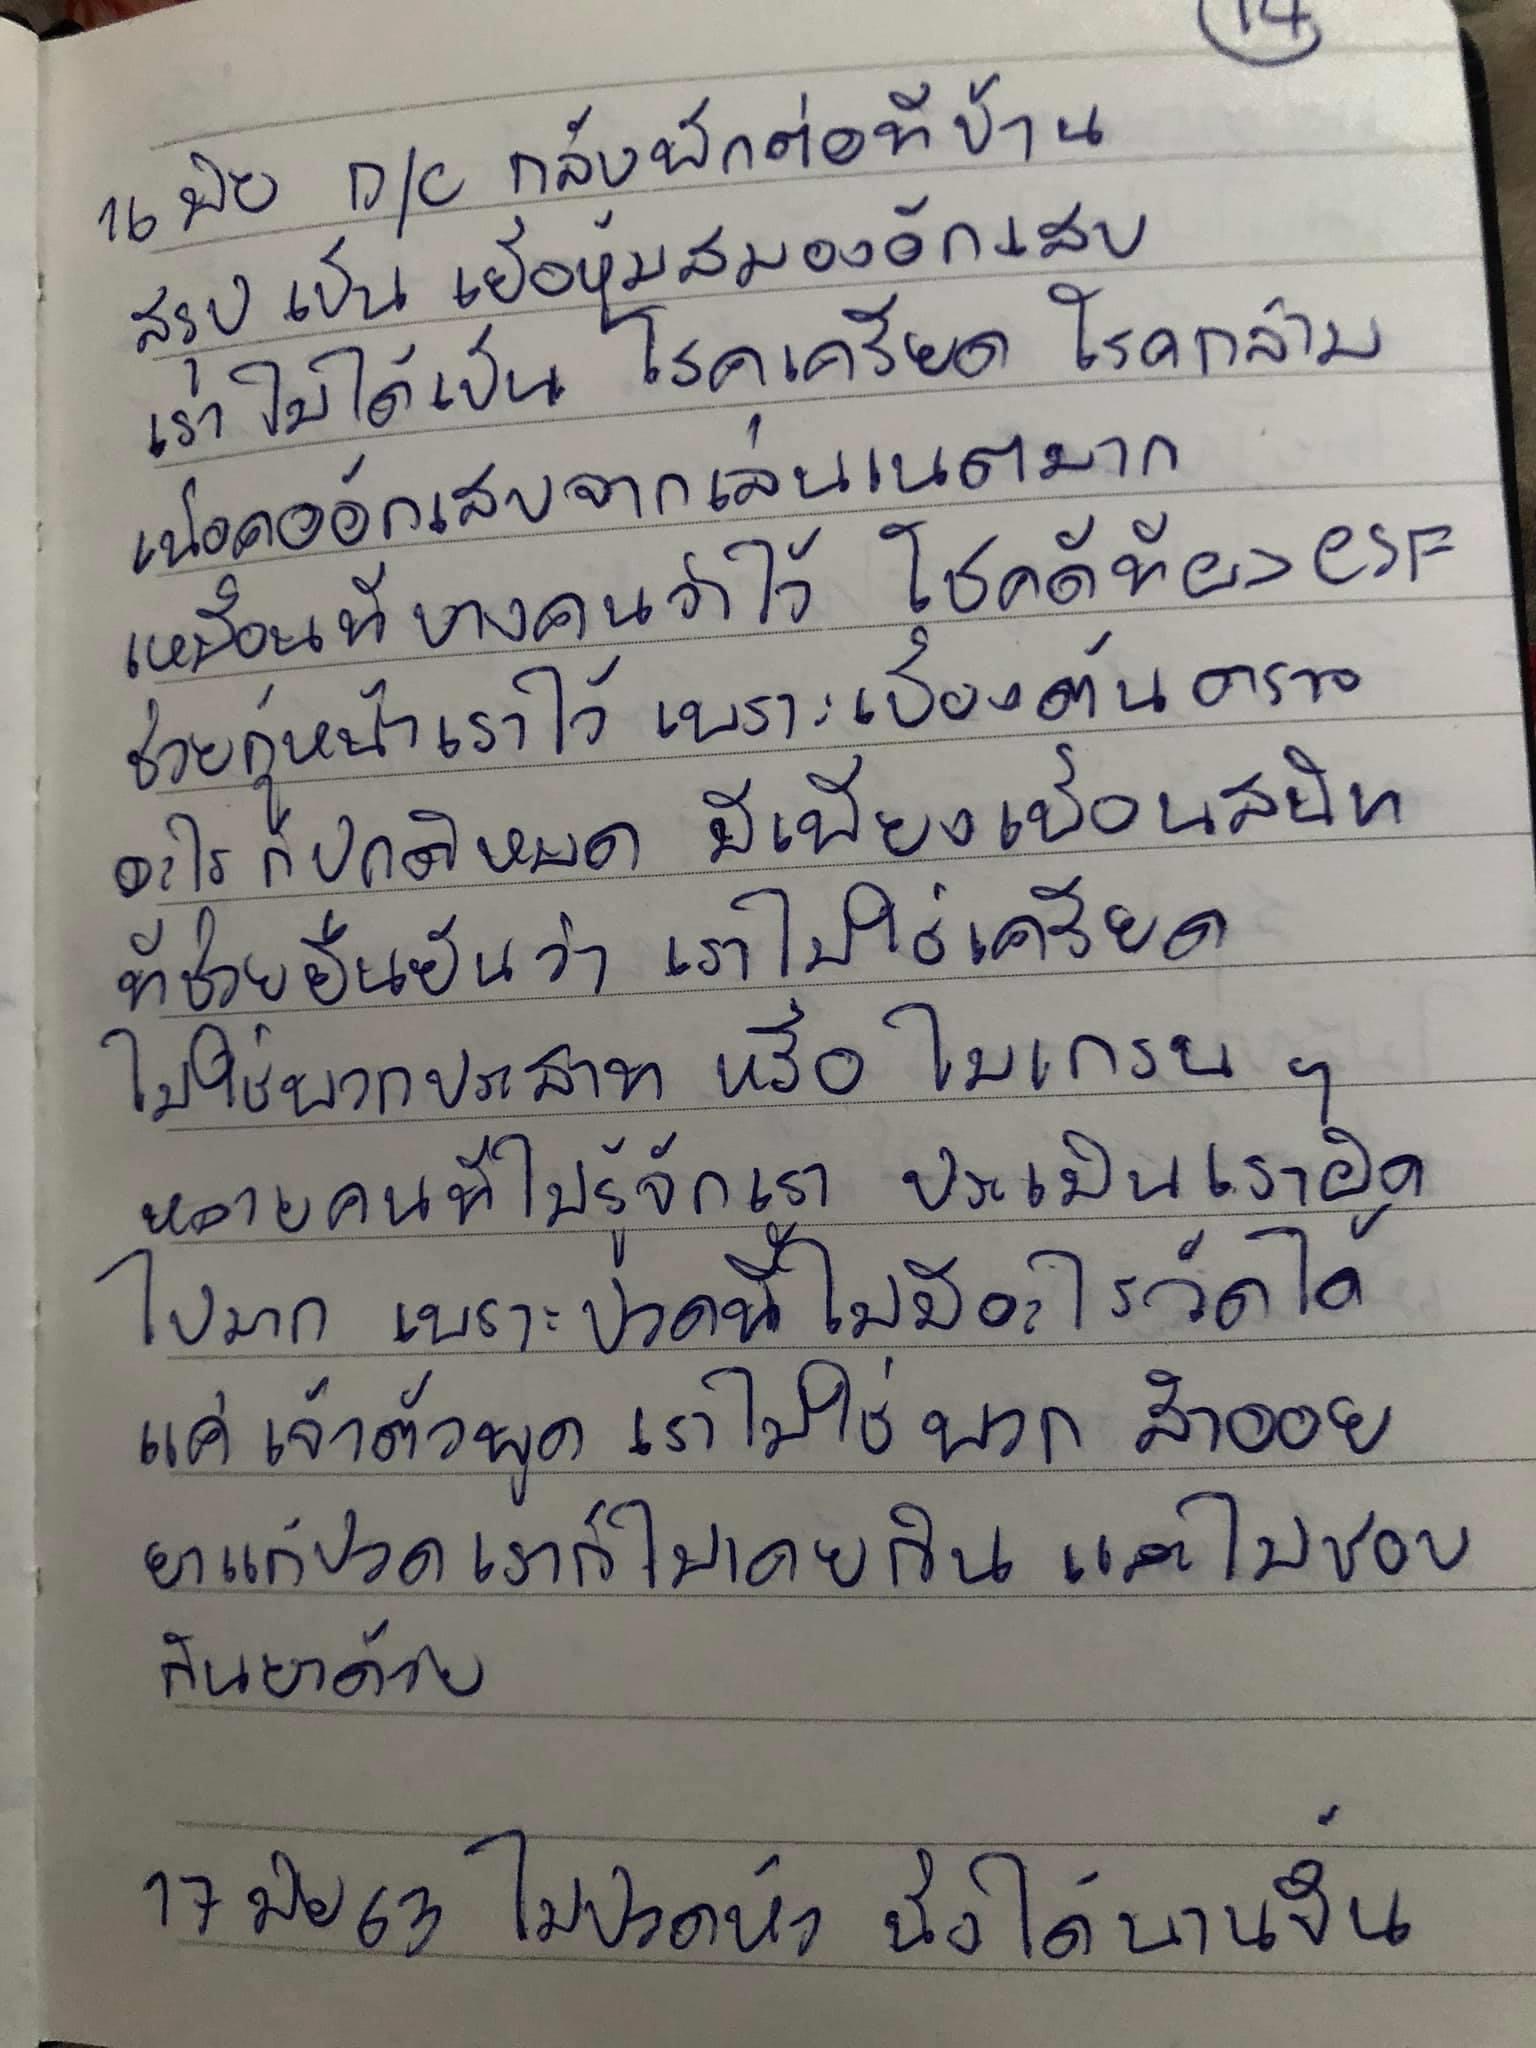 14
16 มิย D/C กลับพักต่อที่บ้าน
สรุป เป็น เยื่อหุ้มสมองอักเสบ
เราไม่ได้เป็น โรคเครียด โรคกล้าม
เนื้อคออักเสบจากเล่นเนตมาก
เหมือนที่บางคนว่าไว้ โชคดีที่ผล CSF
ช่วยกู้หน้าเราไว้ เพราะเบื้องต้นตรวจ
อะไร ก็ปกติหมด มีเพียงเพื่อนสนิท
ที่ช่วยยืนยันว่า เราไม่ใช่เครียด
ไม่ใช่พวกประสาท หรือ ไมเกรน ๆ
หลายคนที่ไม่รู้จักเรา ประเมินเราผิด
ไปมาก เพราะปวดนี้ไม่มีอะไรวัดได้
แค่ เจ้าตัวพูด เราไม่ใช่ พวก สำออย
ยาแก้ปวด เราก็ไม่เคยกิน และไม่ชอบ
กินยาด้วย
17 มิย 63 ไม่ปวดหัว นั่งได้นานขึ้น